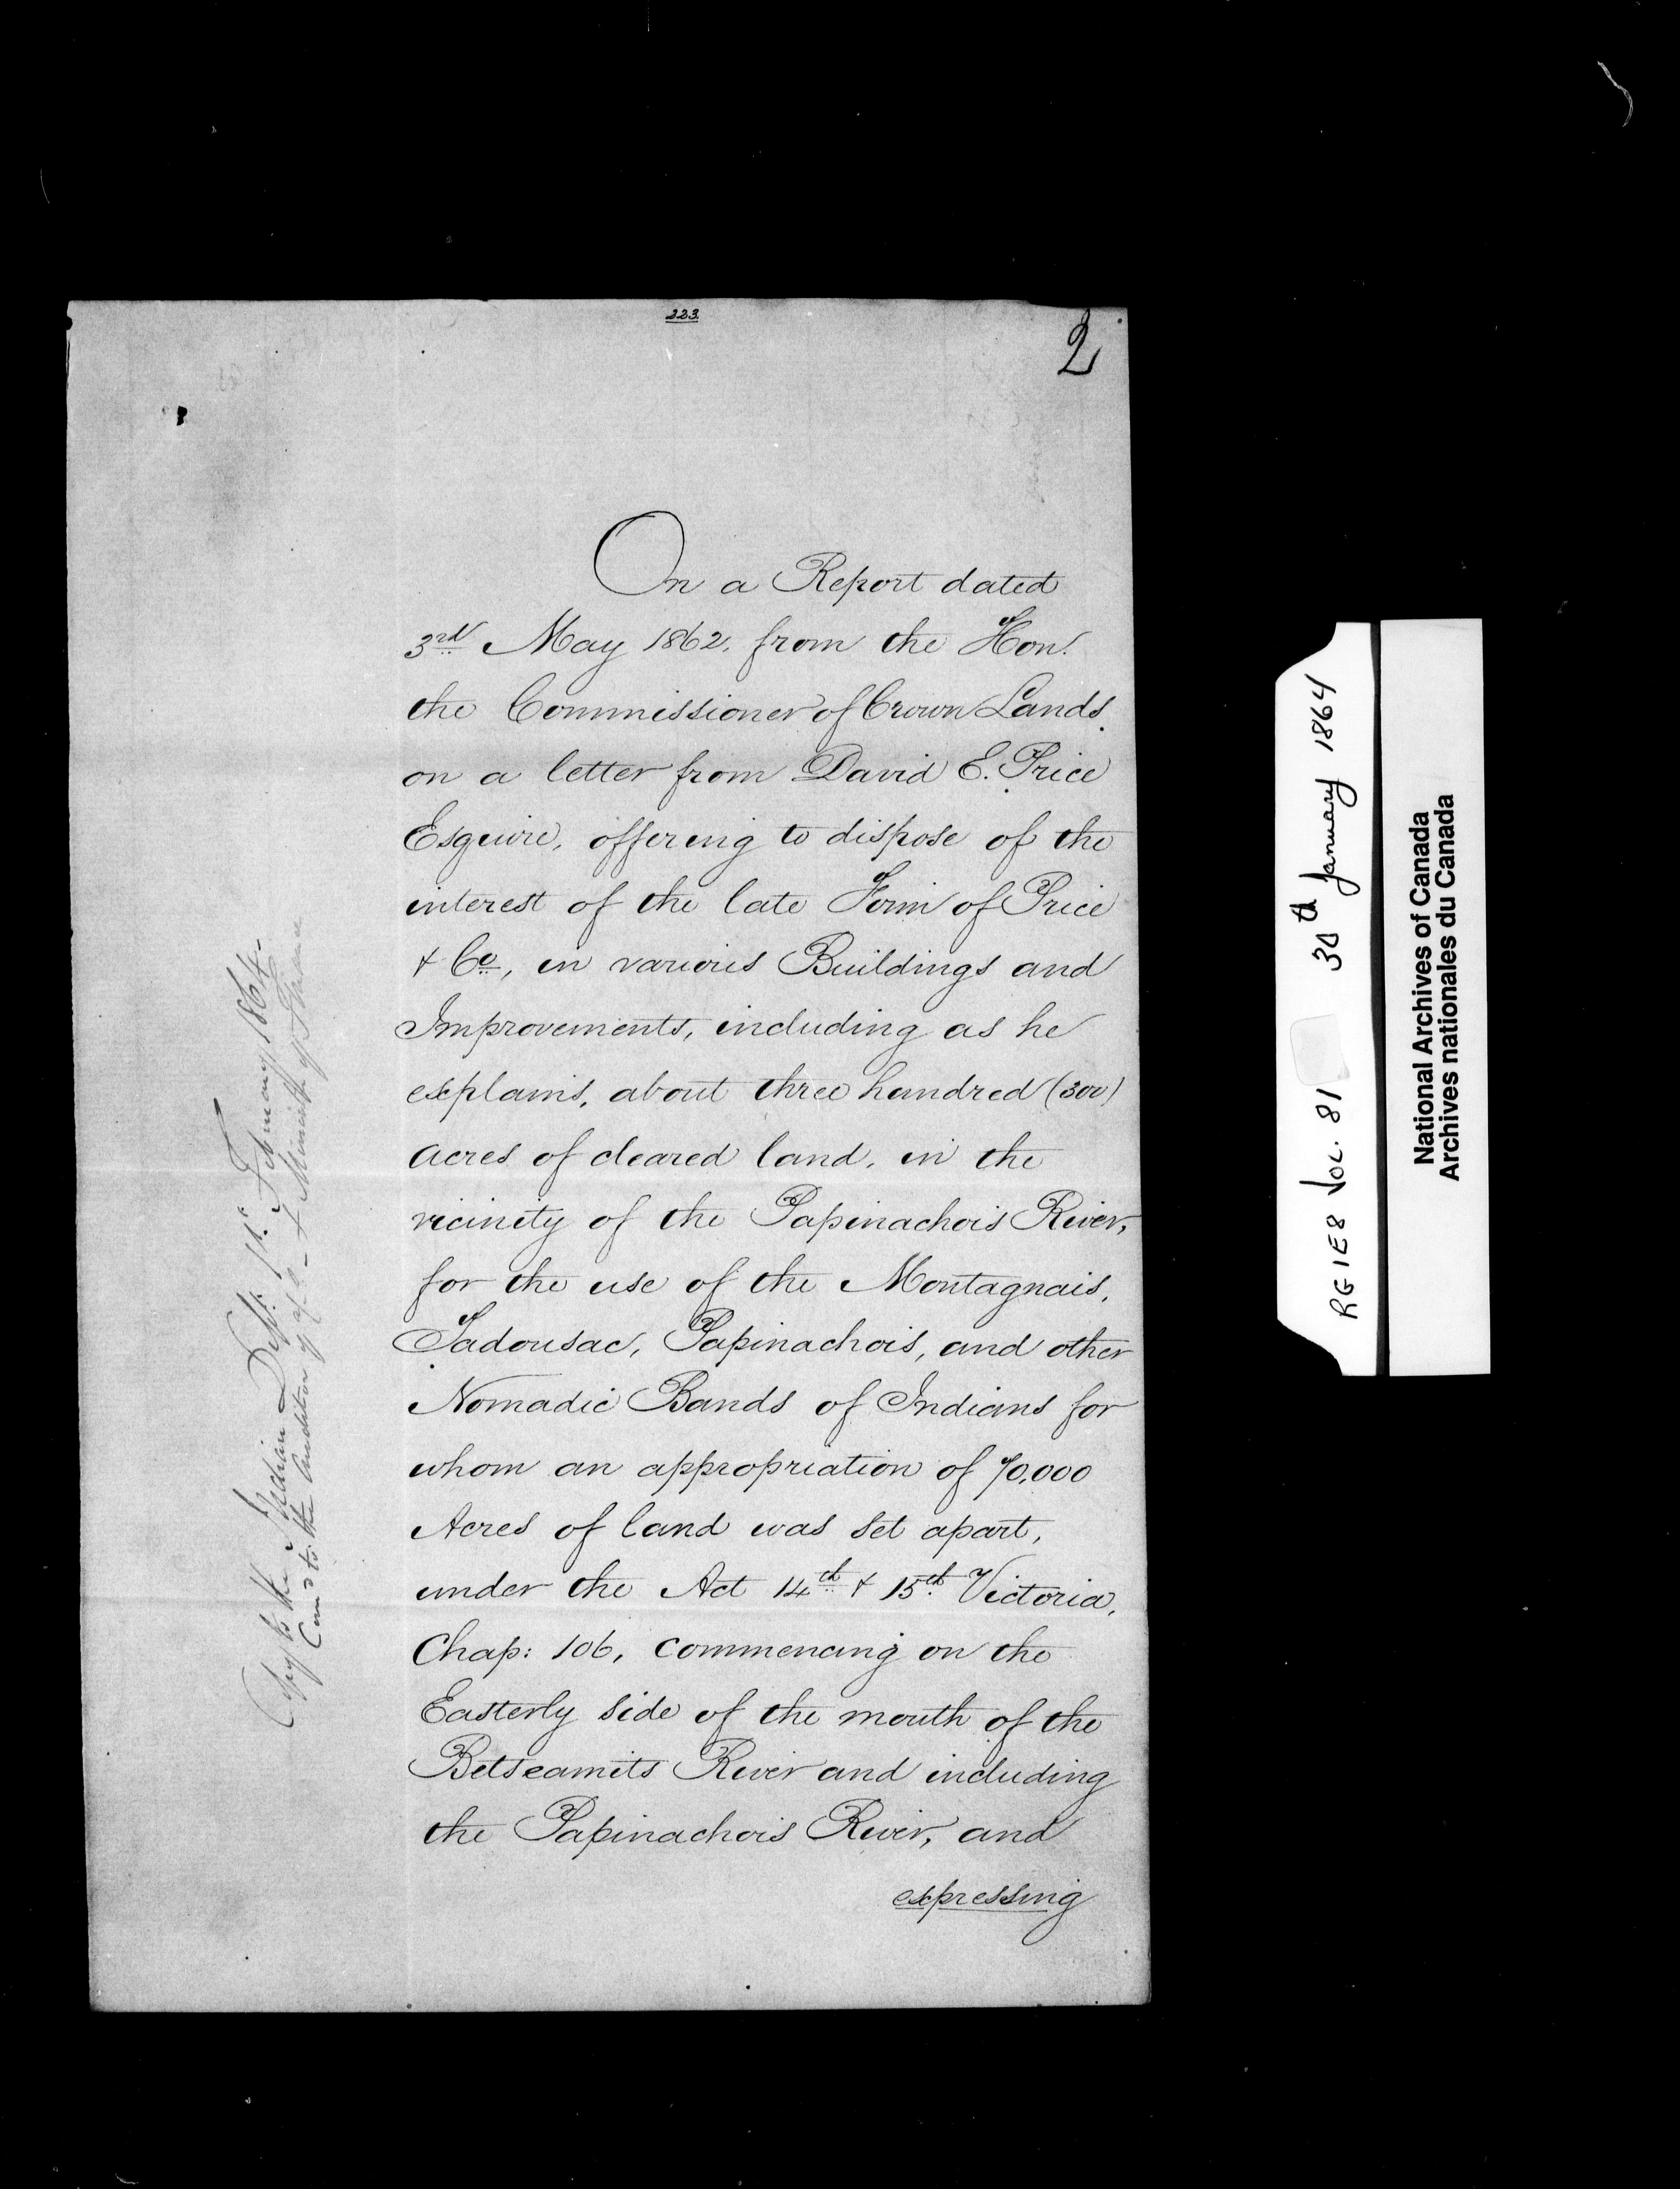 223.
2
On a Report dated
3rd May 1862, from the Hon.
the Commissioner of Crown Lands
on a letter from David E. Price
Esquire, offering to dispose of the
interest of the late Firm of Price
& Co, in various Buildings and
Improvements, including as he
explains, about three hundred (300)
acres of cleared land, in the
vicinity of the Papinachois River,
for the use of the Montagnais,
Tadousac, Papinachois, and other
Nomadic Bands of Indians for
whom an appropriation of 70,000
Acres of land was set apart,
under the Act 14th & 15th Victoria,
Chap: 106, commencing on the
Easterly side of the mouth of the
Betseamits River and including
the Papinachois River, and
expressing
Copy to the Indian Dept. 1st February 1864.
and to the Auditor & Minister of Finance
RG1E8 Vol. 81 30th January 1864
National Archives of Canada
Archives nationales du Canada